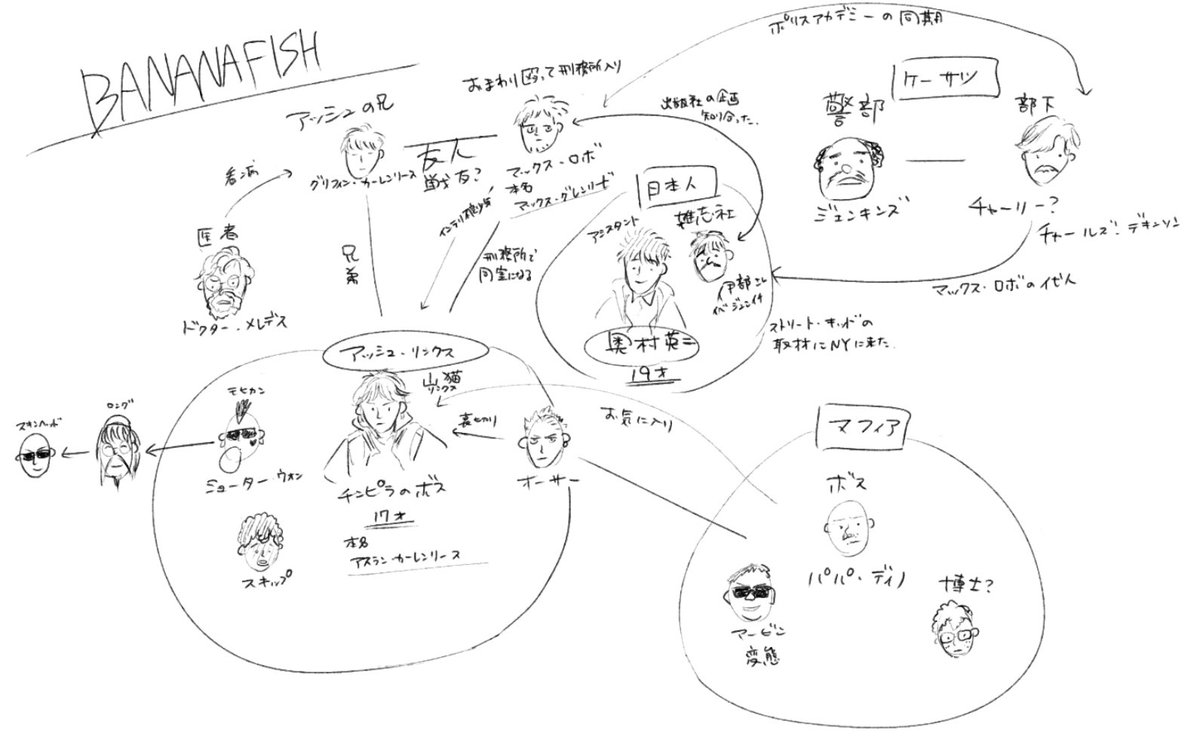 BANANAFISH
ポリスアカデミーの同期
おまわり殴って刑務所入り
アッシュの兄
グリフィン・カーレンリース
友人
戦友?
マックス・ロボ
本名
マックス・グレンリード
出版社の企画
知り合った.
ケーサツ
警部
ジェンキンズ
部下
チャーリー?
チャールズ・デキンソン
日本人
アシスタント
雑志社
伊部さん
イベジュンイチ
奥村英二
19才
マックス・ロボのイゼん
ストリート・キッドの
取材にNYに来た.
医者
ドクター・メレデス
兄弟
刑務所で
同室になる
アッシュ・リンクス
山猫
リンクス
チンピラのボス
17才
本名
アスラン・カーレンリース
裏切り
オーサー
お気に入り
スキンヘッド
ロング
モヒカン
ショーター・ウォン
スキップ
マフィア
ボス
パパ・ディノ
マービン
変態
博士?